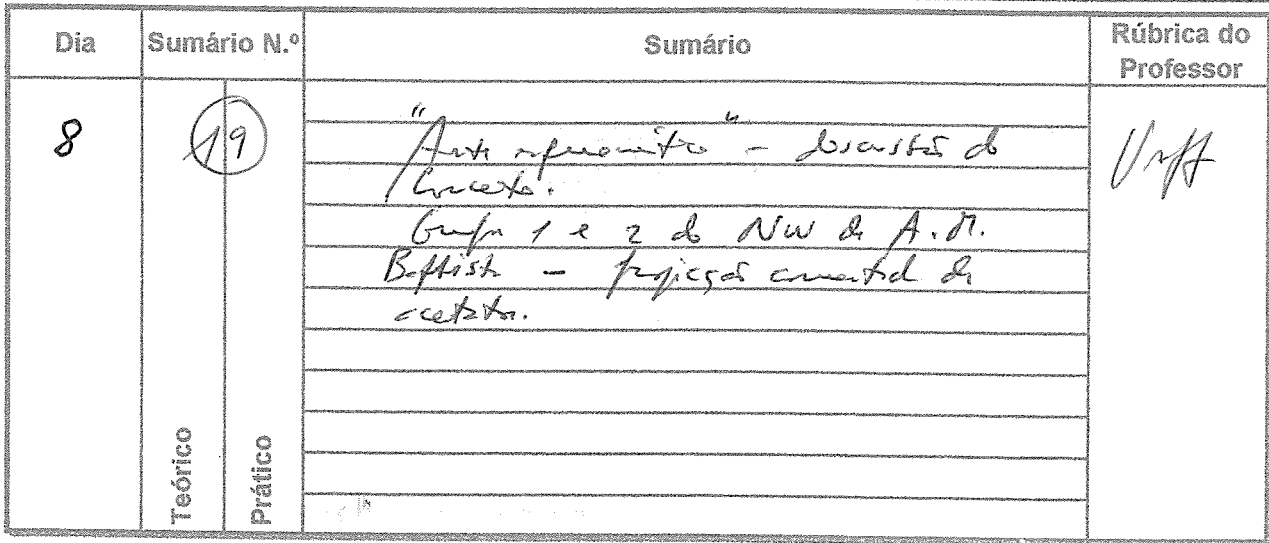 Dia Sumário N.º Sumário Rúbrica do Professor
8 19 "Arte esquemática" - discussão do
conceito.
Grupo 1 e 2 do NW de A. M.
Baptista - projecção comentada de
acetatos.
Teórico Prático